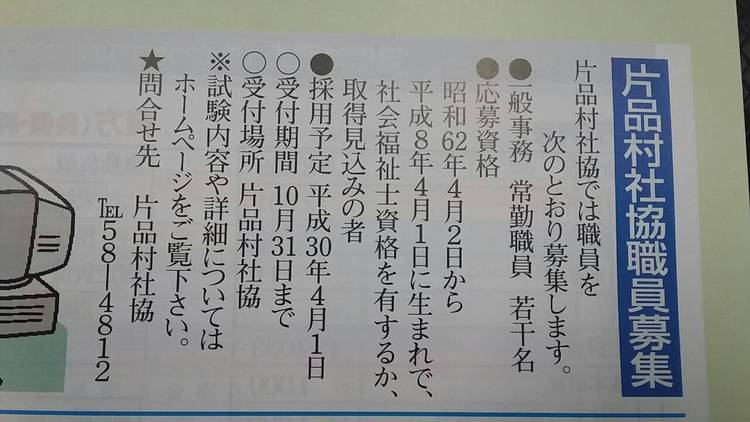 片品村社協職員募集
片品村社協では職員を
次のとおり募集します。
●一般事務 常勤職員 若干名
●応募資格
昭和62年4月2日から
平成8年4月1日に生まれて、
社会福祉士資格を有するか、
取得見込みの者
●採用予定 平成30年4月1日
○受付期間 10月31日まで
○受付場所 片品村社協
※試験内容や詳細については
ホームページをご覧下さい。
★問合せ先 片品村社協
℡58―4812